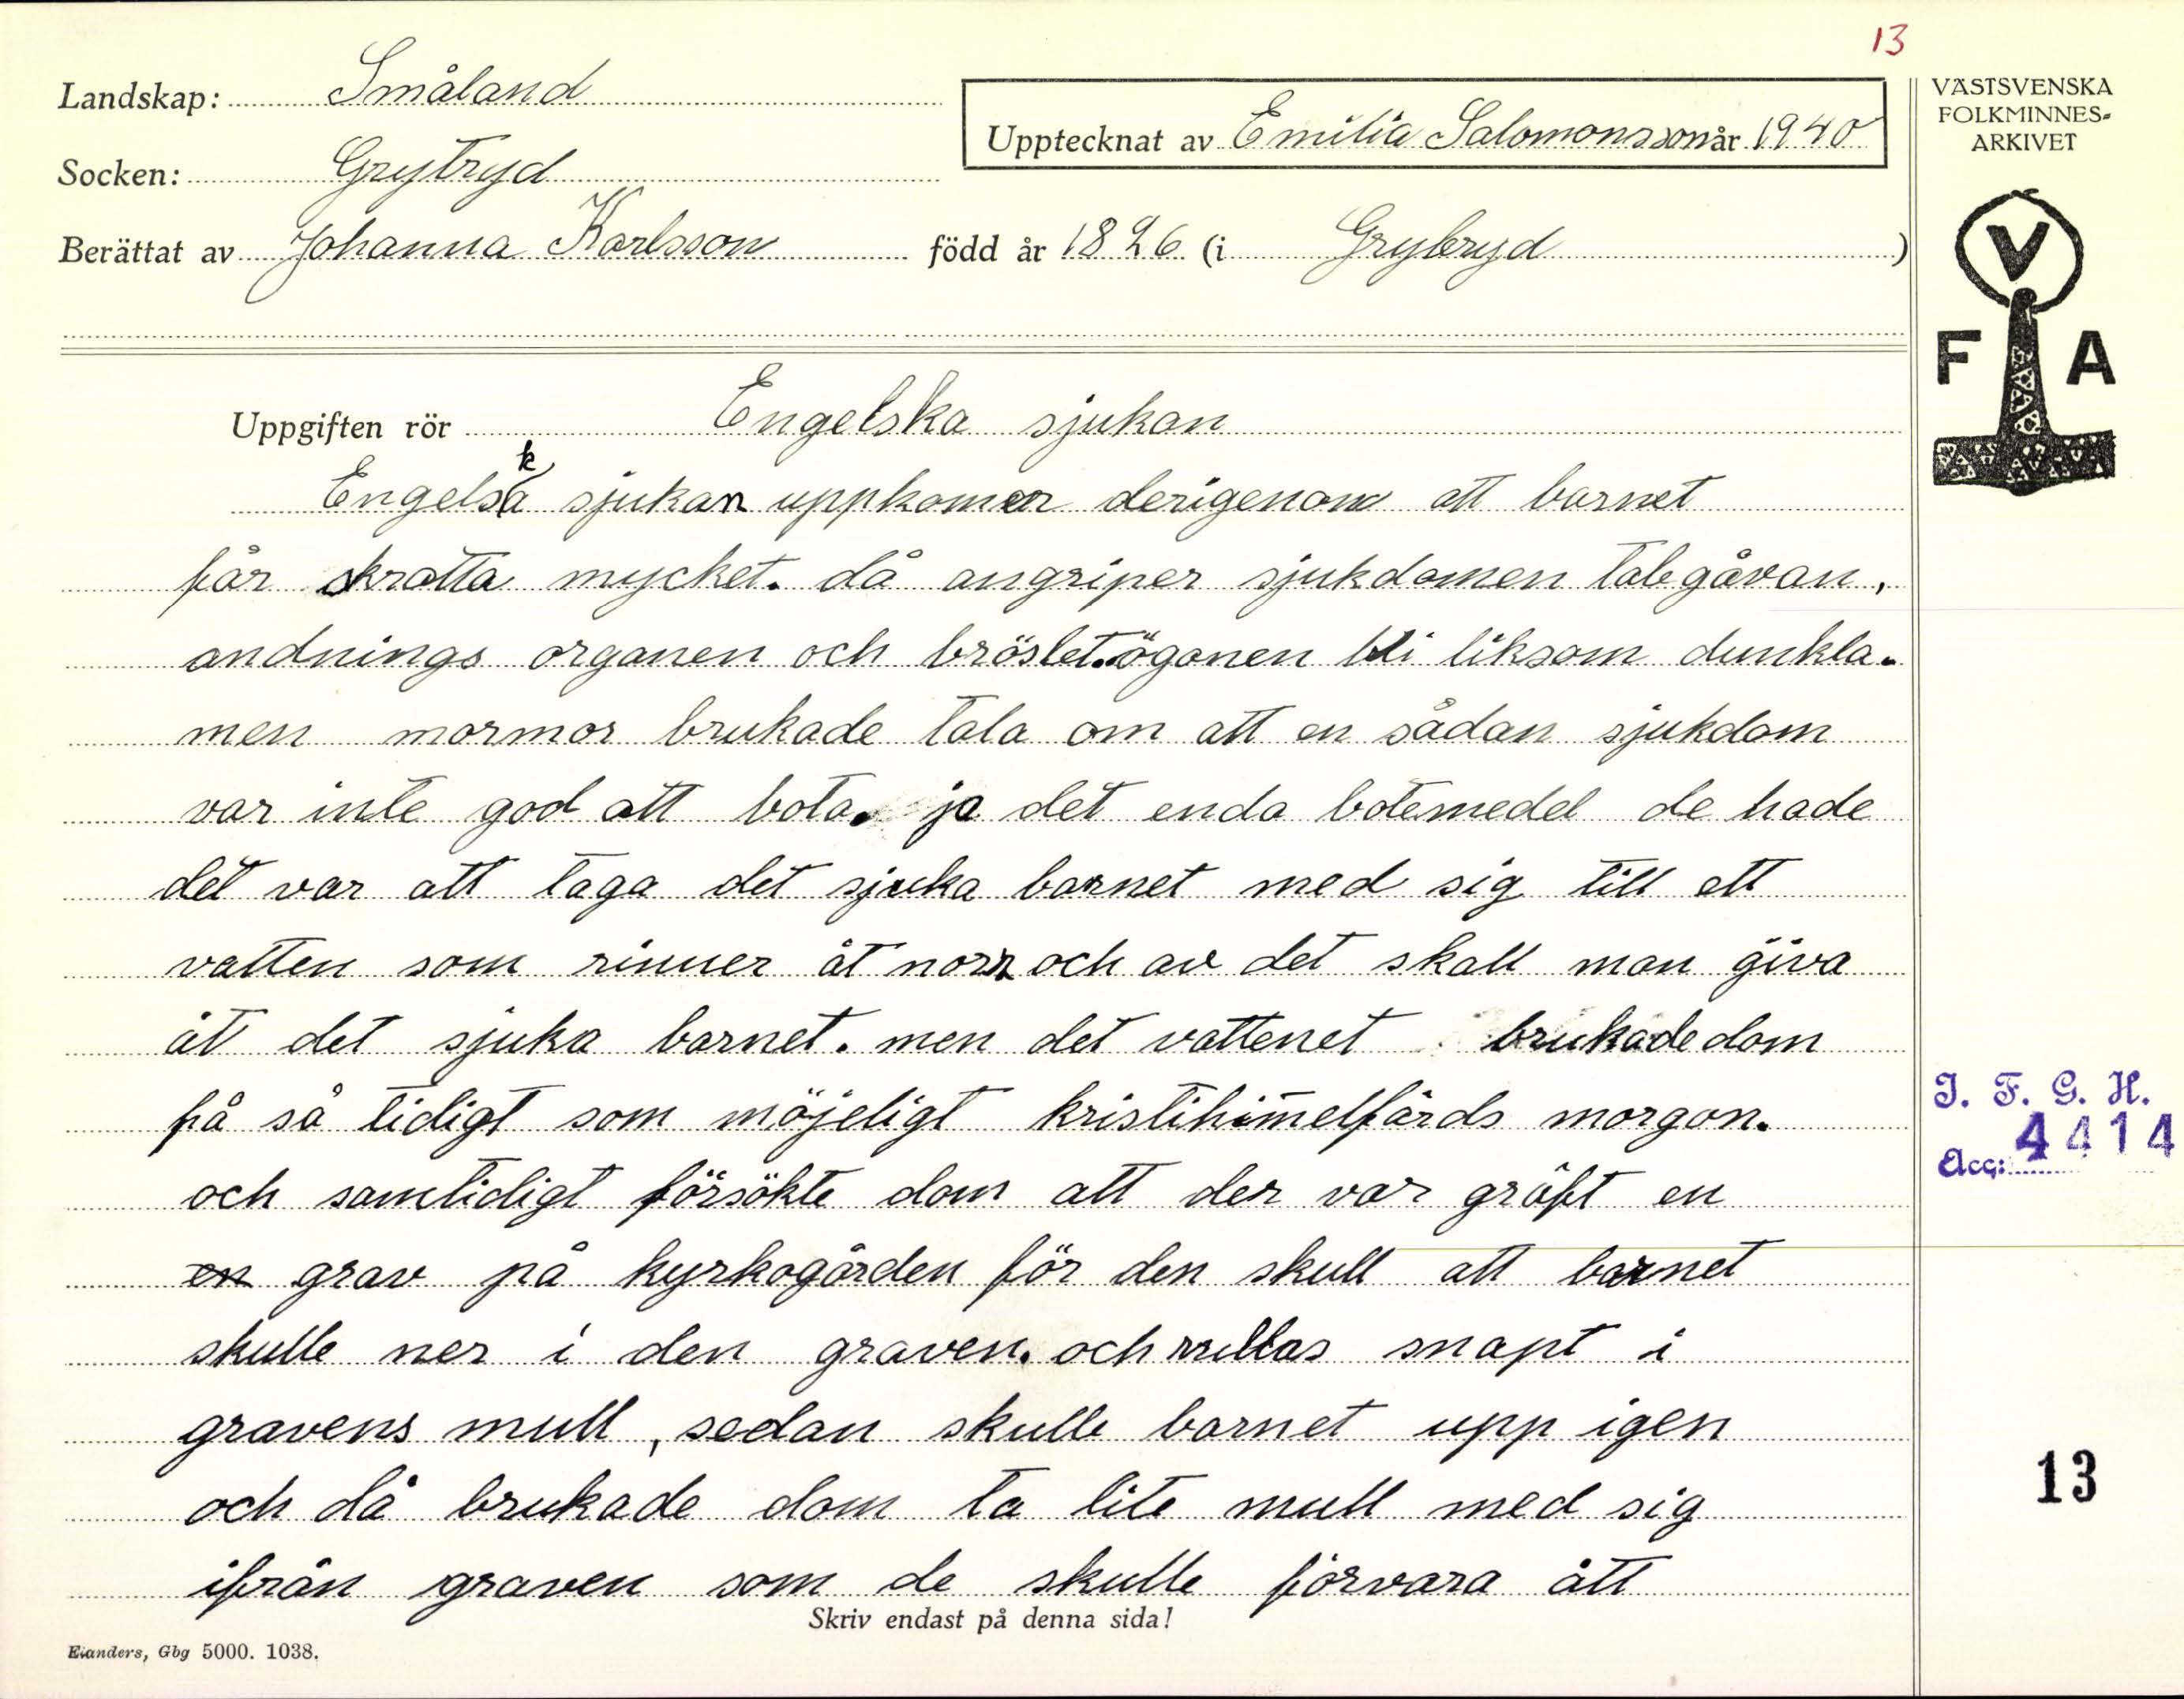 13
Landskap: Småland
Socken: Grytryd
Berättat av Johanna Karlsson född år 1826 (i Gryteryd)
Upptecknat av Emilia Salomonsson år 1940
VÄSTSVENSKA
FOLKMINNES-
ARKIVET
V
F A
Uppgiften rör Engelska sjukan
Engelska sjukan uppkomer derigenom att barnet
får skratta mycket. då angriper sjukdomen talegåvan,
andnings organen och bröstet. ögonen bli liksom dunkla.
men mormor brukade tala om att en sådan sjukdom
var inte god att bota. ja det enda botemedel de hade
det var att taga det sjuka barnet med sig till ett
vatten som rinner åt norr och av det skall man giva
åt det sjuka barnet. men det vattenet brukade dom
få så tidigt som möjeligt kristihim̄elfärds morgon.
och samtidigt försökte dom att der var gräft en
en grav på kyrkogården för den skull att barnet
skulle ner i den graven. och rullas snapt i
gravens mull, sedan skulle barnet upp igen
och då brukade dom ta lite mull med sig
ifrån graven som de skulle förvara ått
Skriv endast på denna sida!
Elanders, Gbg 5000. 1038.
I. F. G. H.
Acc: 4414
13